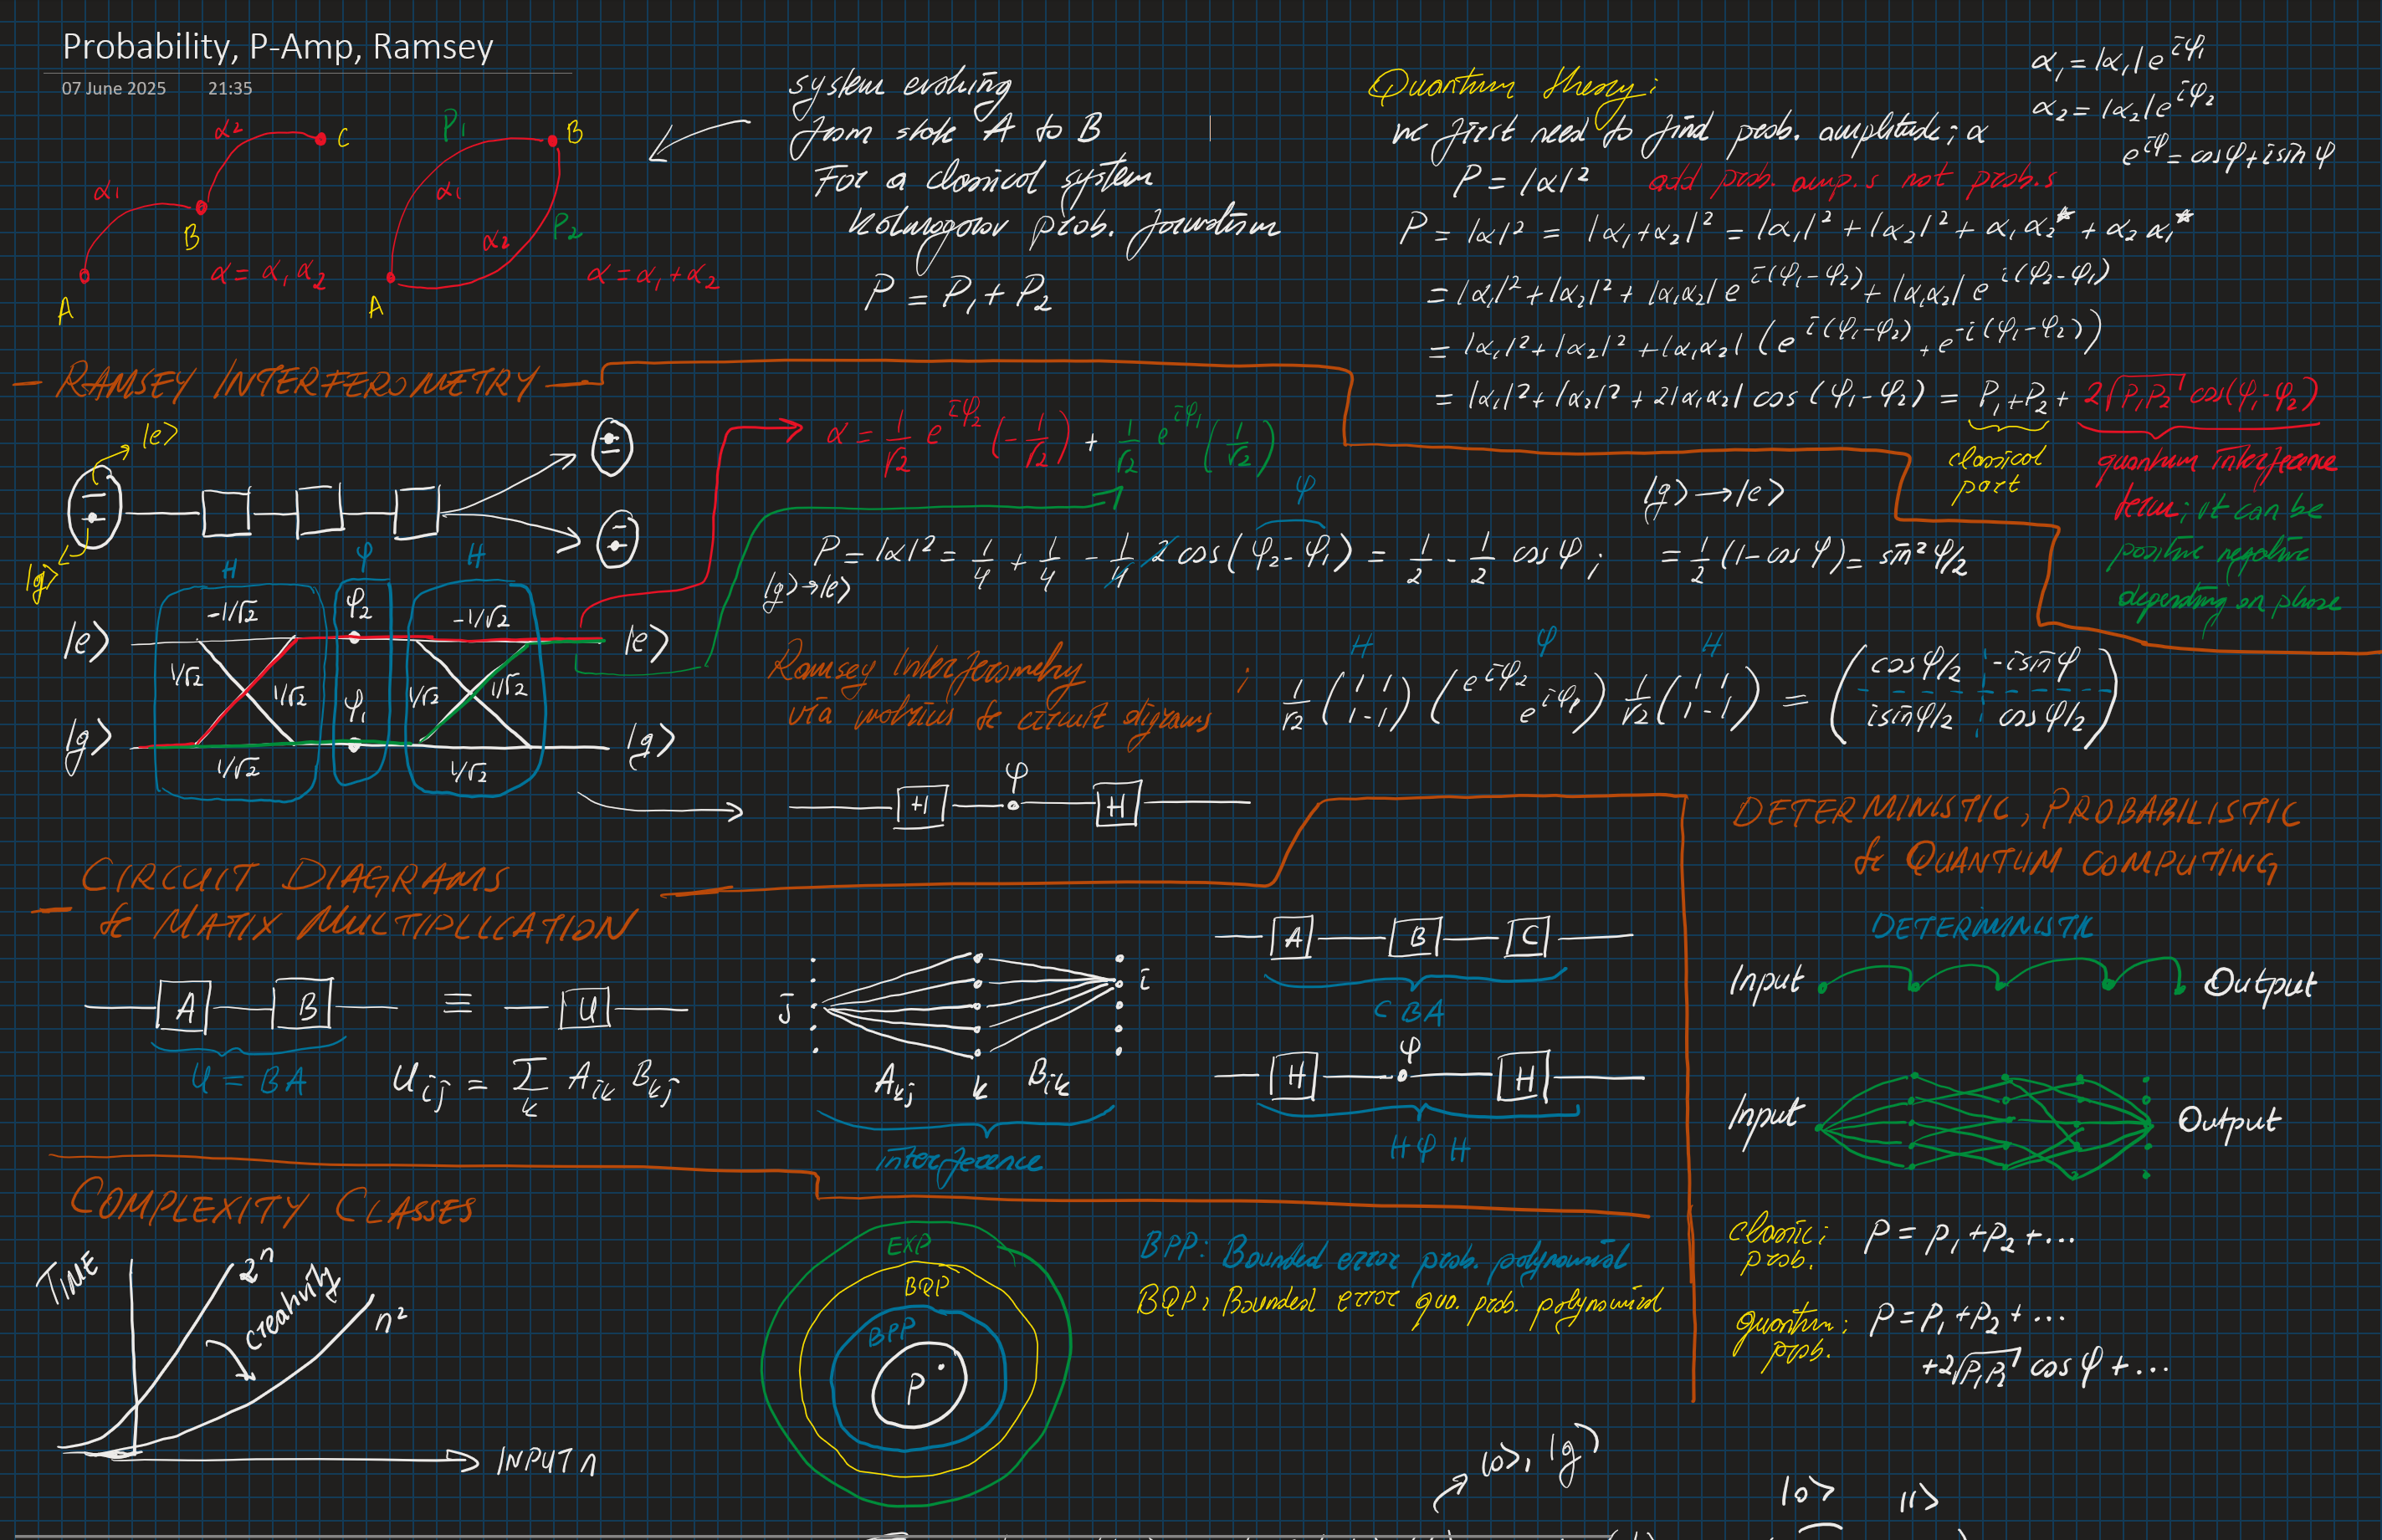 Probability, P-Amp, Ramsey
07 June 2025 21:35
α1
α2
A
B
C
α = α1 α2
P1
α1
α2
P2
A
B
α = α1 + α2
system evolving
from state A to B
For a classical system
Kolmogorov prob. formalism
P = P1 + P2
Quantum theory:
we first need to find prob. amplitude; α
α1 = |α1| e^{iφ1}
α2 = |α2| e^{iφ2}
e^{iφ} = cosφ + i sinφ
P = |α|² add prob. amp.s not prob.s
P = |α|² = |α1+α2|² = |α1|² + |α2|² + α1 α2* + α2 α1*
= |α1|² + |α2|² + |α1α2| e^{i(φ1-φ2)} + |α1α2| e^{i(φ2-φ1)}
= |α1|² + |α2|² + |α1α2| (e^{i(φ1-φ2)} + e^{-i(φ1-φ2)})
= |α1|² + |α2|² + 2|α1α2| cos (φ1-φ2) = P1+P2 + 2√P1P2 cos(φ1-φ2)
classical
part
quantum interference
term; it can be
positive negative
depending on phase
- RAMSEY INTERFEROMETRY -
|e>
|g>
H φ H
|e> -1/√2 φ2 -1/√2 |e>
1/√2 1/√2 1/√2 1/√2
|g> 1/√2 φ1 1/√2 |g>
α = 1/√2 e^{iφ2} (-1/√2) + 1/√2 e^{iφ1} (1/√2)
φ
|g> → |e>
P = |α|² = 1/4 + 1/4 - 1/4 2 cos(φ2-φ1) = 1/2 - 1/2 cosφ ; = 1/2 (1-cosφ) = sin² φ/2
|g>→|e>
Ramsey Interferometry
via matrius & circuit digrams
;
H φ H
1/√2 (1 1 / 1 -1) (e^{iφ2} / e^{iφ1}) 1/√2 (1 1 / 1 -1) = (cosφ/2 -isinφ / isinφ/2 cosφ/2)
H φ H
CIRCUIT DIAGRAMS
- & MATIX MULTIPLICATION
A B ≡ U
U = BA
Uij = Σk Aik Bkj
j
i
Akj k Bik
interference
A B C
CBA
H φ H
H φ H
DETERMINISTIC, PROBABILISTIC
& QUANTUM COMPUTING
DETERMINISTIC
Input Output
Input Output
classic; prob. P = P1 + P2 + ...
quantum; prob. P = P1 + P2 + ...
+2√P1P2 cosφ + ...
COMPLEXITY CLASSES
TIME
2^n
creativity
n²
INPUT n
EXP
BQP
BPP
P
BPP: Bounded error prob. polynomial
BQP: Bounded error qua. prob. polynomial
|0>, |g>
|0> |1>